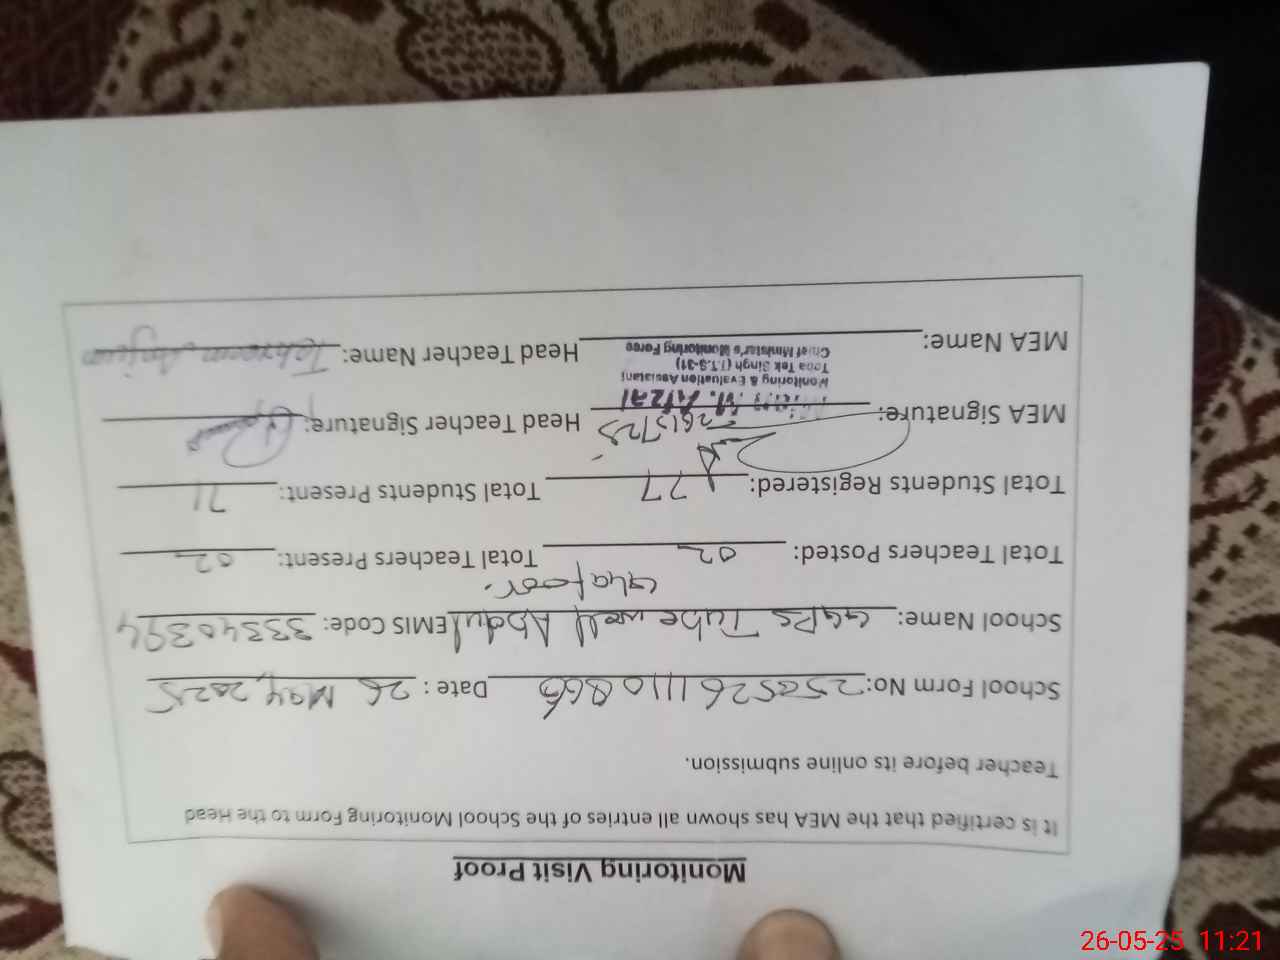 Monitoring Visit Proof
It is certified that the MEA has shown all entries of the School Monitoring Form to the Head
Teacher before its online submission.
School Form No: 2505261110866 Date: 26 May, 2025
School Name: GGPS Tube well Abdul EMIS Code: 33340394
Ghafoor.
Total Teachers Posted: 02 Total Teachers Present: 02
Total Students Registered: 77 Total Students Present: 71
MEA Signature: Head Teacher Signature:
M. Afzal
Monitoring & Evaluation Assistant
Toba Tek Singh (T.T.S-31)
Chief Minister's Monitoring Force
MEA Name: Head Teacher Name: Anjum
26-05-25 11:21